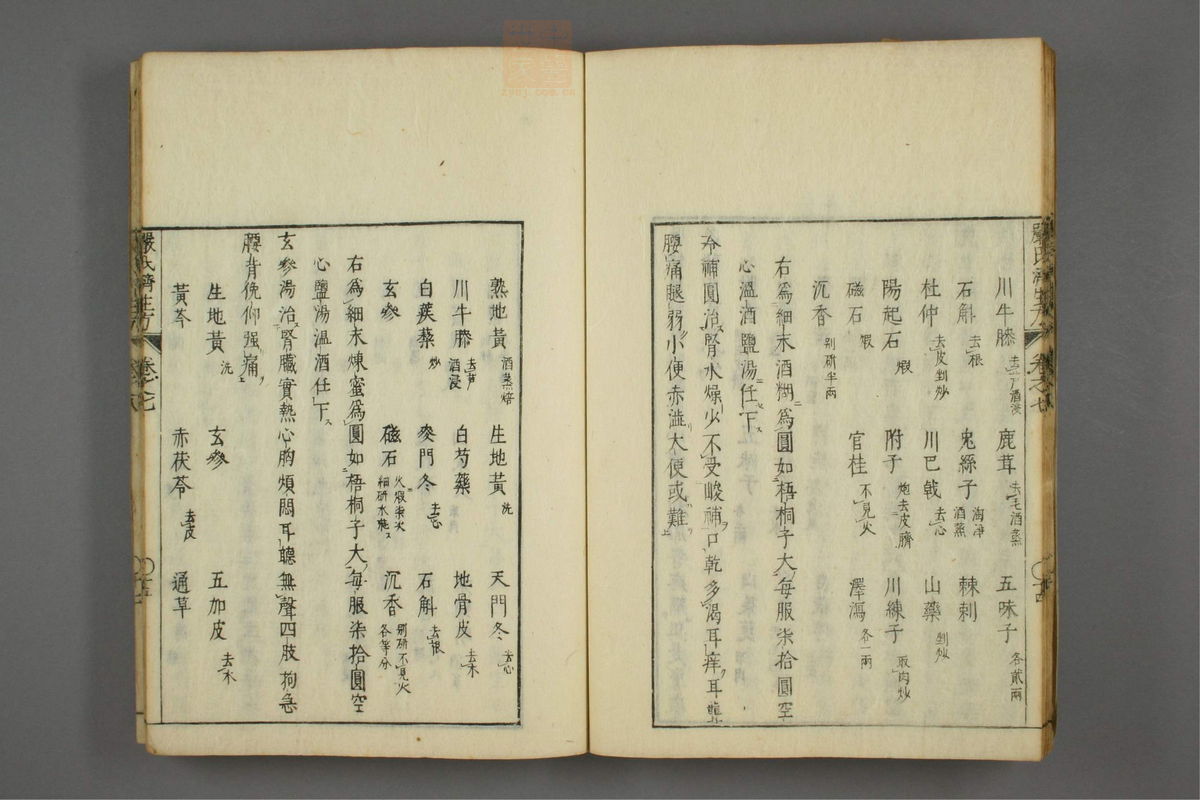 川牛膝 去芦酒浸 鹿茸 去毛酒蒸 五味子 各貳兩
石斛 去根 兎絲子 淘淨酒蒸 棘刺
杜仲 去皮剉炒 川巴戟 去心 山藥 剉炒
陽起石 煆 附子 炮去皮臍 川練子 取肉炒
磁石 煆 官桂 不見火 澤瀉 各一兩
沉香 别研半兩
右爲細末酒糊爲圓如梧桐子大每服柒拾圓空
心溫酒鹽湯任下
冷補圓治腎水燥少不受峻補口乾多渴耳痒耳聾
腰痛腿弱小便赤澁大便或難
熟地黃 酒蒸焙 生地黃 洗 天門冬 去心
川牛膝 去芦酒浸 白芍藥 地骨皮 去木
白蒺蔾 炒 麥門冬 去心 石斛 去根
玄參 磁石 火煆柒次細研水飛 沉香 别研不見火各等分
右爲細末煉蜜爲圓如梧桐子大每服柒拾圓空
心鹽湯温酒任下
玄參湯治腎臟實熱心胸煩悶耳聽無聲四肢拘急
腰背俛仰强痛
生地黃 洗 玄參 五加皮 去木
黃芩 赤茯苓 去皮 通草
嚴氏濟生方 卷之七